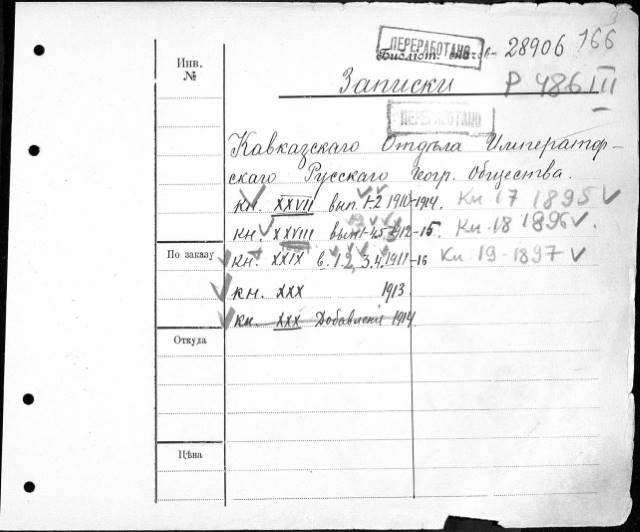 ПЕРЕРАБОТАНО
28906 166
Инв.
№
Записки
Р 486 III
ПЕРЕРАБОТАНО
Кавказскаго Отдѣла Император-
скаго Русскаго Геогр. Общества.
кн. XXVII вып. 1-2 1910-1914. Кн 17 1895
кн. XXVIII вып 1912-15. Кн. 18 1896.
По заказу
кн. XXIX в. 1. 2, 3. 4. 1911-16 Кн 19-1897
кн. XXX 1913
кн. XXX Добавленiе 1914
Откуда
Цѣна